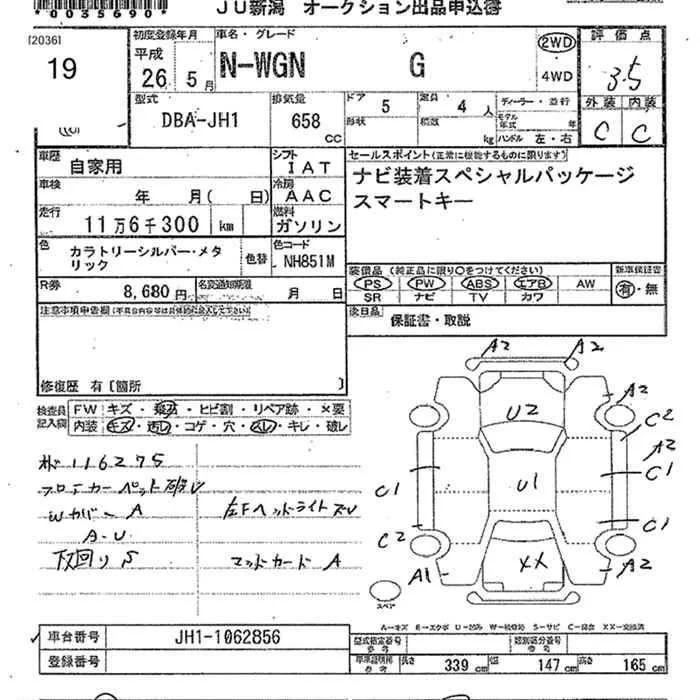 *0035690*
JU新潟 オークション出品申込書
[2036]
19
初度登録年月
平成
26 5月
車名・グレード
N-WGN G
2WD
4WD
評価点
3.5
外装 内装
C C
型式
DBA-JH1
排気量
658 CC
ドア 5
形状
定員 4 人
積載 kg
ディーラー・並行
モデル年式 年
ハンドル 左・右
車歴
自家用
シフト
IAT
車検
年 月( 日)
冷房
AAC
走行
11万6千300 km
燃料
ガソリン
色
カラトリーシルバー・メタリック
色替
色コード
NH851M
R券
8,680円
名変通知期限
月 日
セールスポイント(正常に機能するものに限ります)
ナビ装着スペシャルパッケージ
スマートキー
装備品 (純正品に限り○をつけてください)
PS PW ABS エアB AW
SR ナビ TV カワ
新車保証書
有・無
後日品
保証書・取説
注意事項申告欄
修復歴 有〔箇所 〕
検査員記入欄
FW キズ・飛石・ヒビ割・リペア跡・×要
内装 キズ・汚レ・コゲ・穴・スレ・キレ・破レ
116275
フロアカーペット
Wカバー A
A-U
下回り S
左Fヘッドライト
マッドガード A
A2 A2
A2
C2
A2
U2
U1
C1
C1
C1
C2
XX
A1
A2
スペア
A-キズ E-エクボ U-凹み W-補修跡 S-サビ C-腐食 XX-交換済
車台番号
JH1-1062856
登録番号
型式指定番号 参考
類別区分番号 参考
車検証明細 参考
長さ 339 cm
幅 147 cm
高さ 165 cm